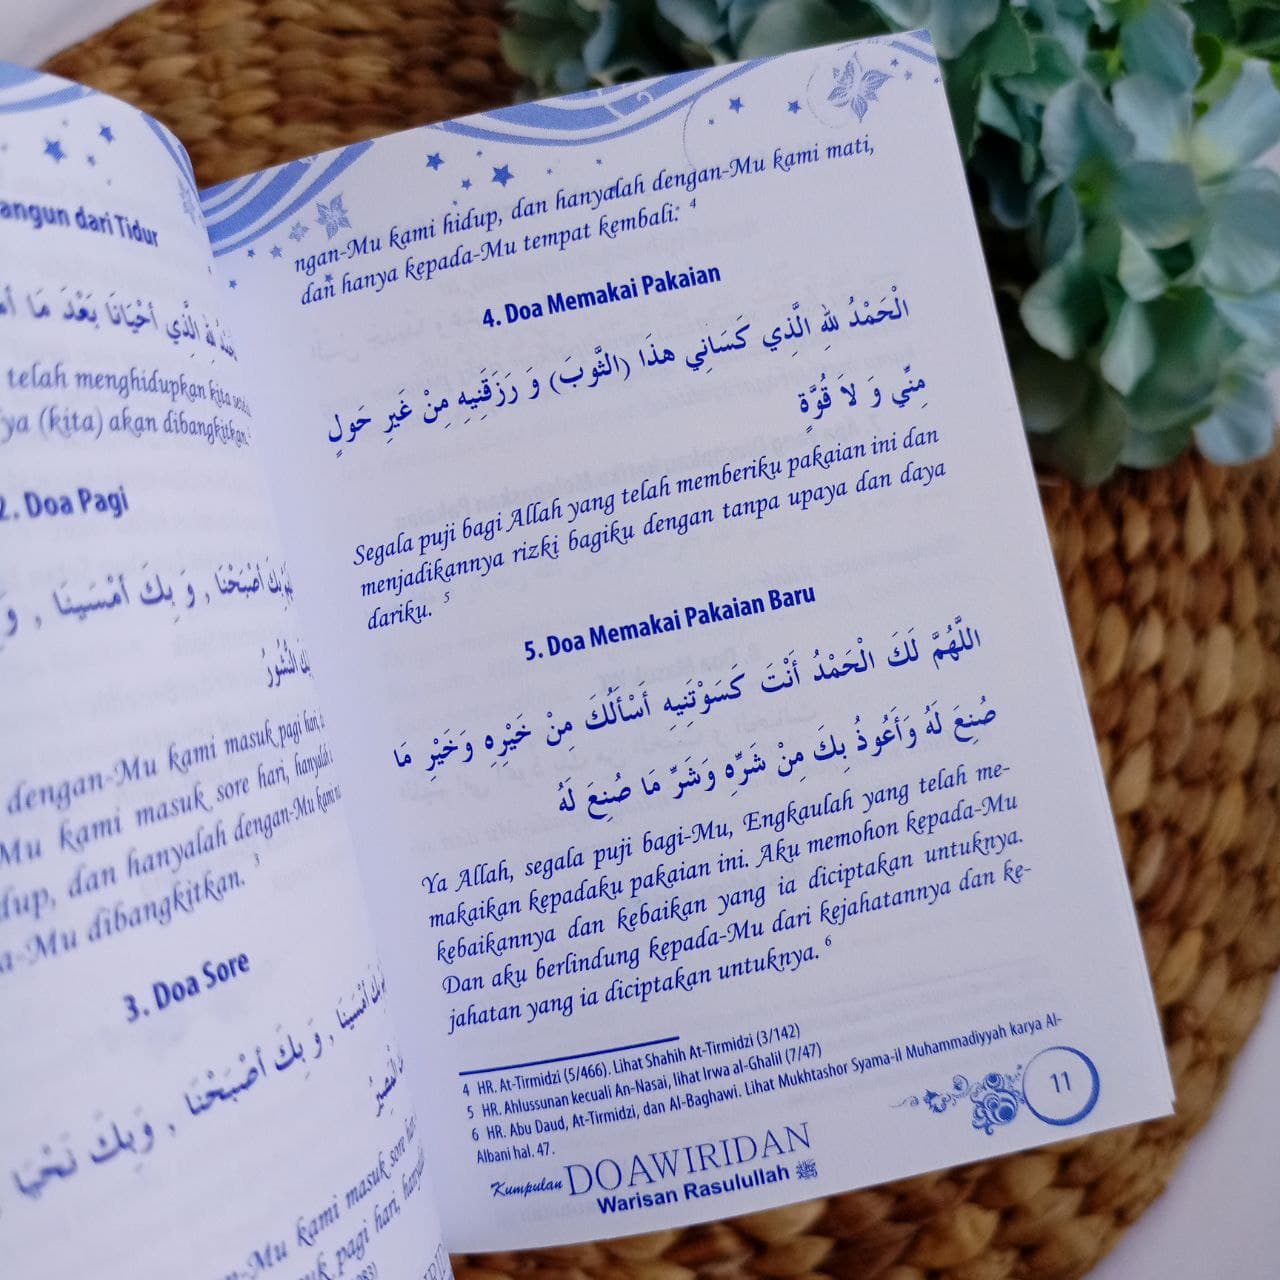 angun dari Tidur
لِلَّهِ الَّذِي أَحْيَانَا بَعْدَ مَا
telah menghidupkan kita
ya (kita) akan dibangkitkan.
2. Doa Pagi
بِكَ أَصْبَحْنَا , وَ بِكَ أَمْسَينَا ,
النُّشُورُ
dengan-Mu kami masuk pagi hari,
Mu kami masuk sore hari, hanyalah
dup, dan hanyalah dengan-Mu kami
a-Mu dibangkitkan. 3
3. Doa Sore
بِكَ أَمْسَينَا , وَ بِكَ أَصْبَحْنَا , وَ بِكَ نَحْيَا
الْمَصِيْرُ
an-Mu kami masuk sore
uk pagi hari,
ngan-Mu kami hidup, dan hanyalah dengan-Mu kami mati,
dan hanya kepada-Mu tempat kembali: 4
4. Doa Memakai Pakaian
الْحَمْدُ لِلهِ الَّذِي كَسَانِي هذَا (الثَّوبَ) وَ رَزَقَنِيهِ مِنْ غَيرِ حَولٍ
مِنِّي وَ لاَ قُوَّةٍ
Segala puji bagi Allah yang telah memberiku pakaian ini dan
menjadikannya rizki bagiku dengan tanpa upaya dan daya
dariku. 5
5. Doa Memakai Pakaian Baru
اللَّهُمَّ لَكَ الْحَمْدُ أَنْتَ كَسَوْتَنِيهِ أَسْأَلُكَ مِنْ خَيْرِهِ وَخَيْرِ مَا
صُنِعَ لَهُ وَأَعُوذُ بِكَ مِنْ شَرِّهِ وَشَرِّ مَا صُنِعَ لَهُ
Ya Allah, segala puji bagi-Mu, Engkaulah yang telah me-
makaikan kepadaku pakaian ini. Aku memohon kepada-Mu
kebaikannya dan kebaikan yang ia diciptakan untuknya.
Dan aku berlindung kepada-Mu dari kejahatannya dan ke-
jahatan yang ia diciptakan untuknya. 6
4 HR. At-Tirmidzi (5/466). Lihat Shahih At-Tirmidzi (3/142)
5 HR. Ahlussunan kecuali An-Nasai, lihat Irwa al-Ghalil (7/47)
6 HR. Abu Daud, At-Tirmidzi, dan Al-Baghawi. Lihat Mukhtashor Syama-il Muhammadiyyah karya Al-
Albani hal. 47.
11
Kumpulan DOA WIRIDAN
Warisan Rasulullah ﷺ